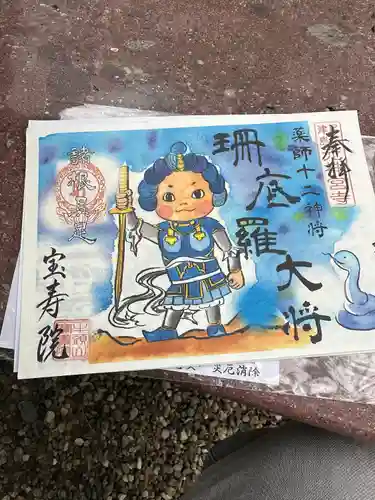 奉拝
薬師十二神将
珊底羅大将
諸根具足
宝寿院
災厄消除